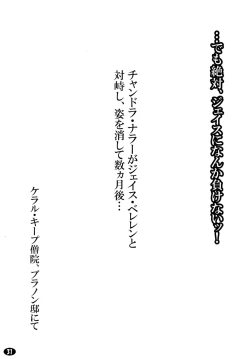 …でも絶対、ジェイスになんか負けないッ！
チャンドラ・ナラーがジェイス・ベレレンと
対峙し、姿を消して数ヵ月後…
ケラル・キープ僧院、ブラノン邸にて
31